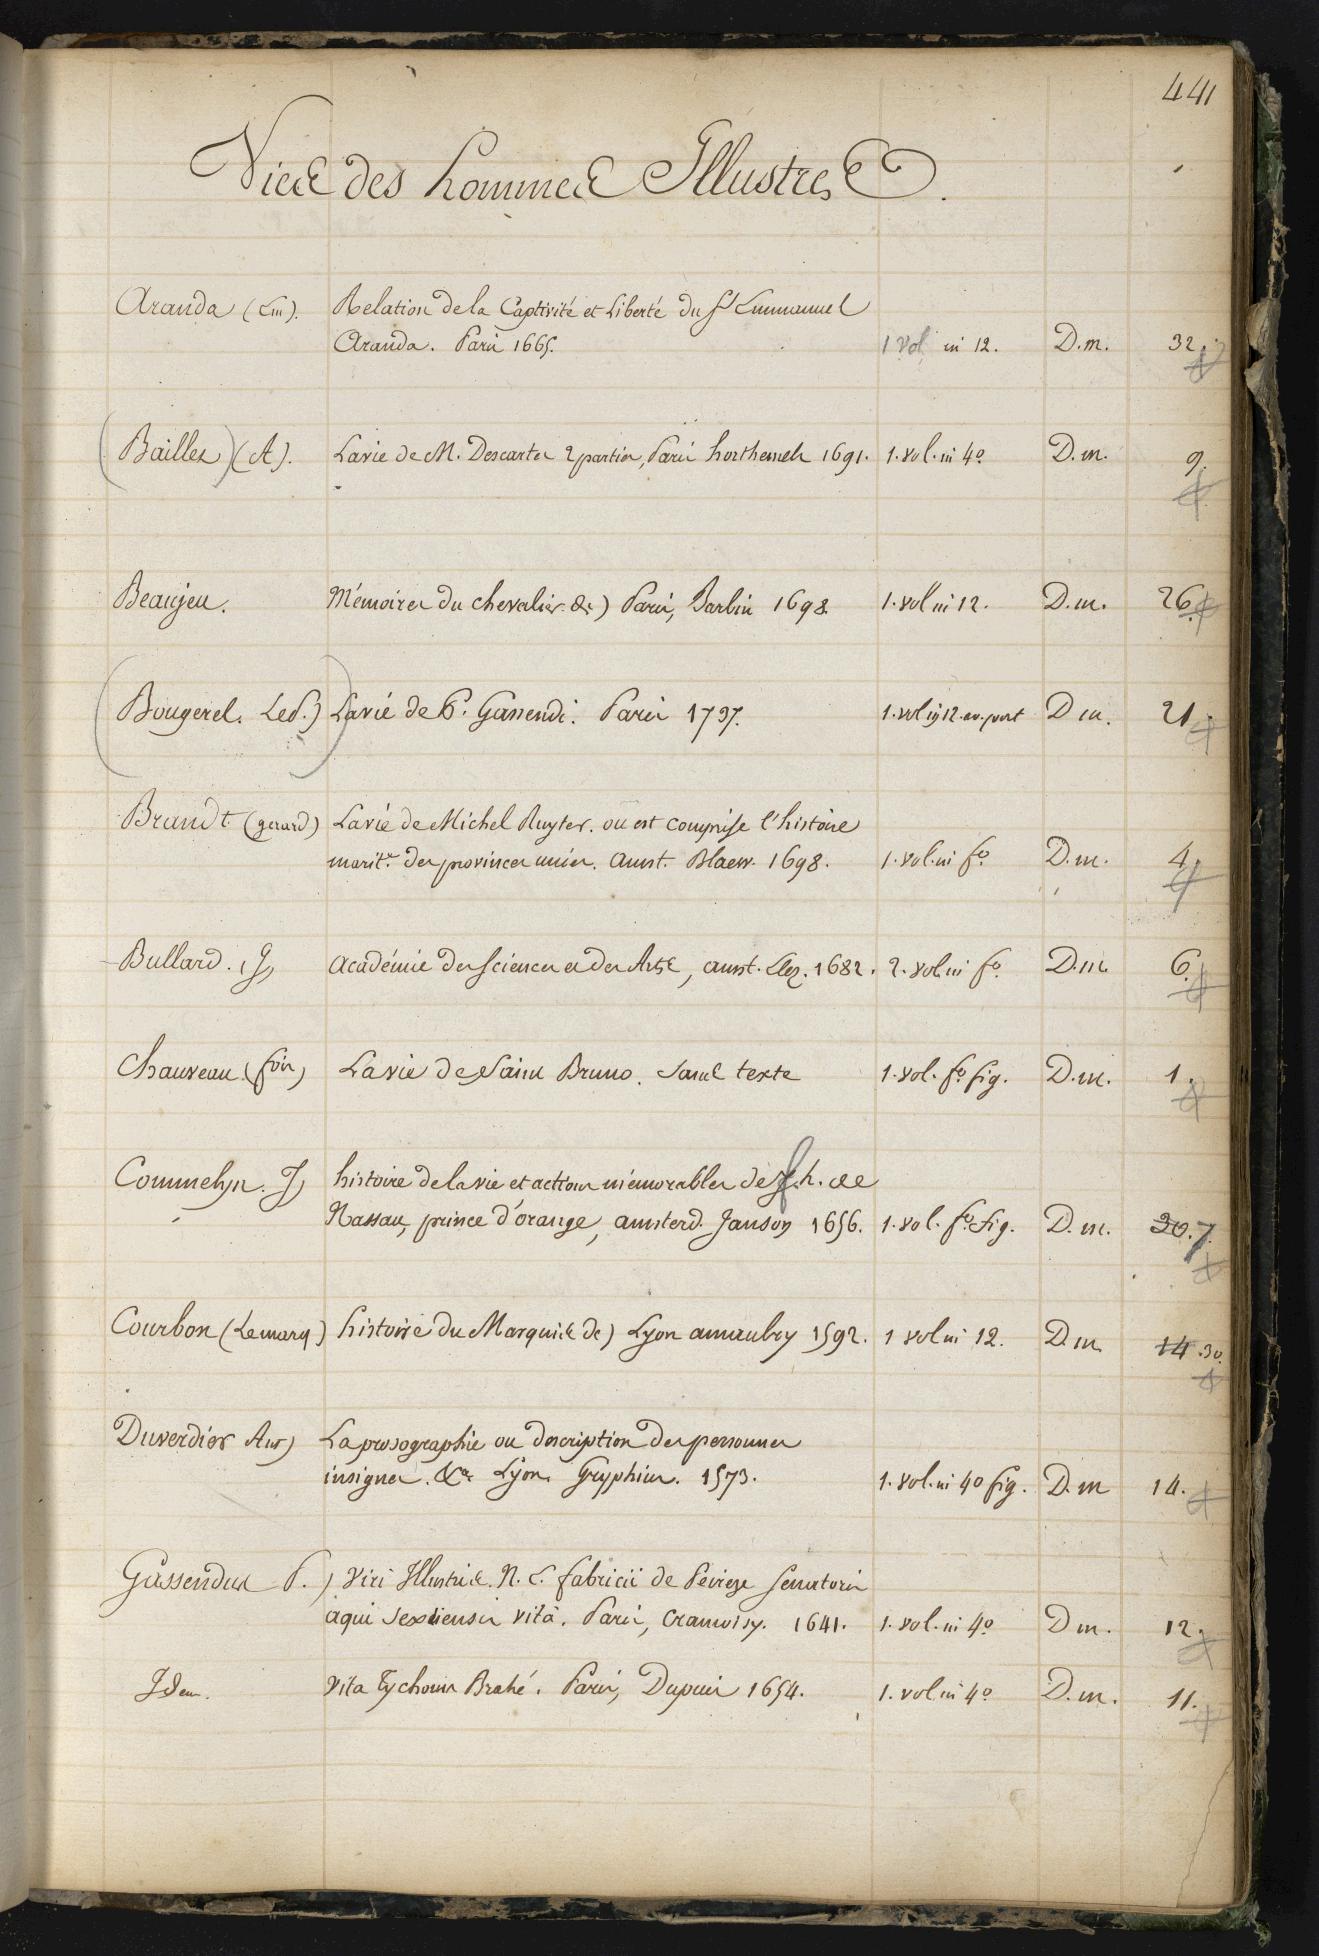 441
Vies des hommes Illustres.
Aranda (Em). Relation de la Captivité et Liberté du Sr Emmanuel
Aranda. Paris 1665. 1 vol in 12. D.m. 32.
Baillet (A). La vie de M. Descartes 2 parties, Paris horthemels 1691. 1. vol. in 4o D.m. 9.
Beaujeu. Mémoires du chevalier de) Paris, Barbin 1698. 1. vol in 12. D.m. 26.
Bougerel. Le P.) La vie de P. Gassendi. Paris 1737. 1. vol in 12. av. port D m. 21.
Brandt (gerard) La vie de Michel Ruyter. où est comprise l'histoire
marit.e des provinces unies. Amst. Blaew. 1698. 1. vol. in fo. D.m. 4.
Bullard. J) Académie des Sciences et des Arts, amst. Elez. 1682. 2. vol in fo. D.m 6.
Chauveau (foin) La vie de Saint Bruno. Sans texte 1. vol. fo. fig. D.m. 1.
Commelyn. J) histoire de la vie et actions mémorables de f. h. de
Nassau, prince d'orange, amsterd. Janson 1656. 1. vol. fo. fig. D.m. 30. 7.
Courbon (Le marq.) histoire du Marquis de) Lyon amaulry 1592. 1 vol in 12. D.m. 14 .30.
Duverdier Ant) La prosographie ou description des personnes
insignes. &a Lyon. Gryphius. 1573. 1. vol. in 4o fig. D.m 14.
Gassendus P.) Viri Illustris. N. C. fabricii de Peiresc Senatoris
aqui Sextiensis vita. Paris, Cramoisy. 1641. 1. vol. in 4o D m. 12.
Idem. Vita Tychonis Brahé. Paris, Dupuis 1654. 1. vol in 4o D.m. 11.